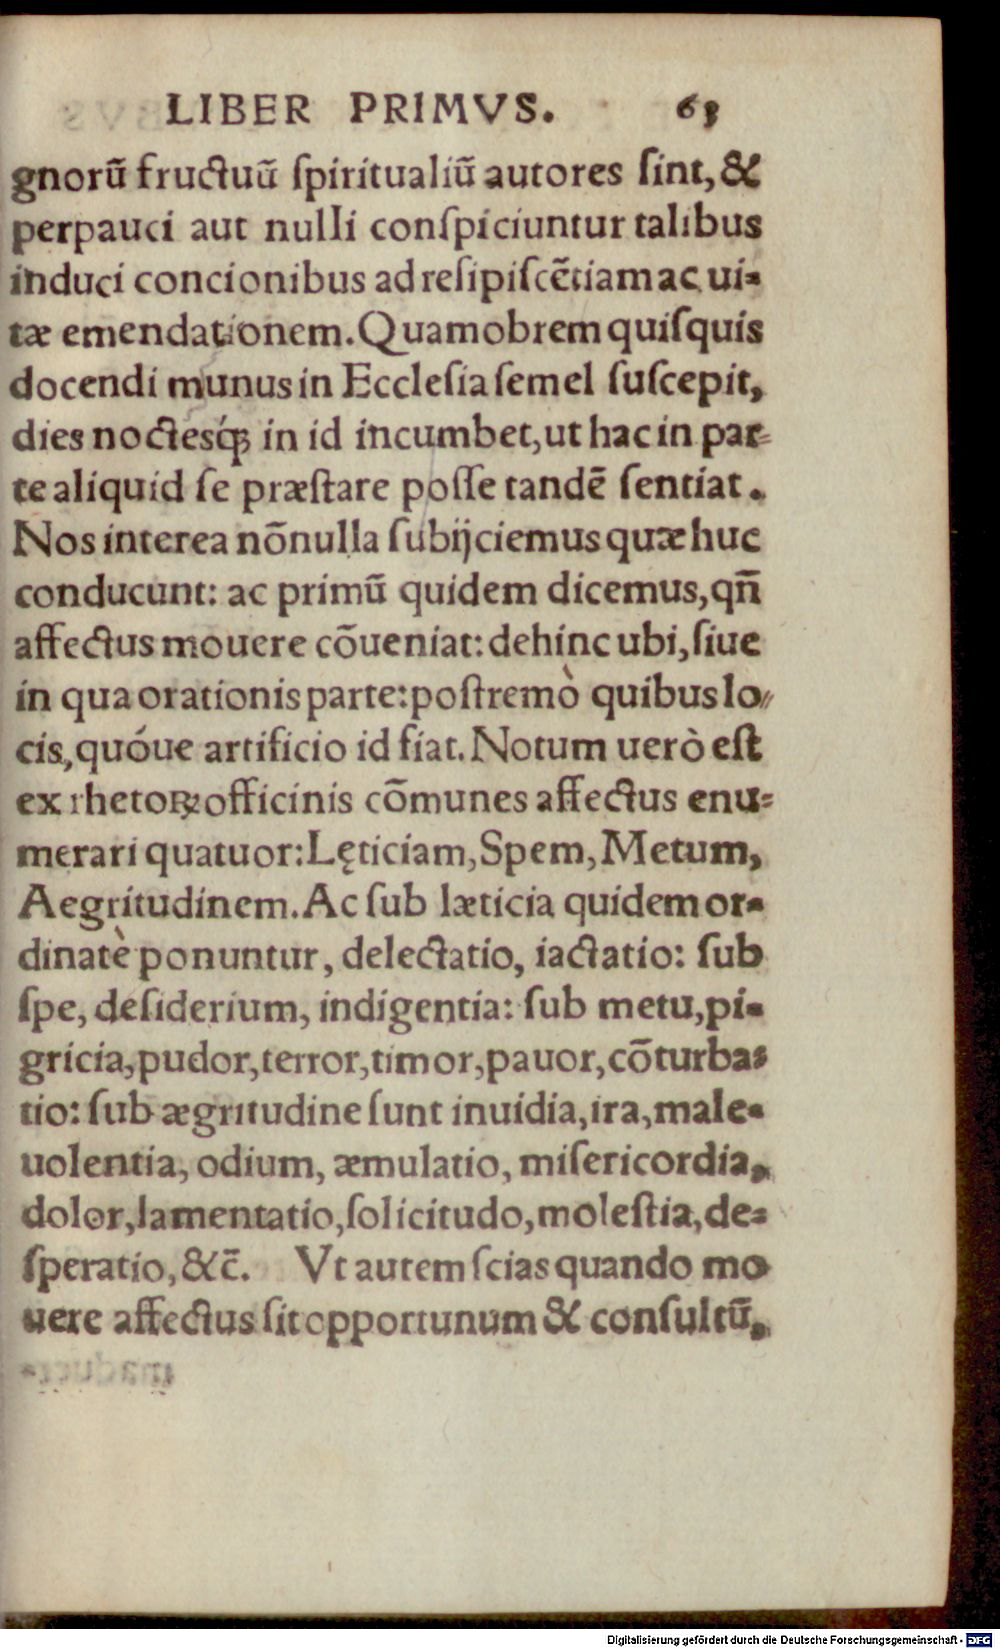 LIBER PRIMVS. 63
gnorũ fructuũ ſpiritualiũ autores ſint, &
perpauci aut nulli conſpiciuntur talibus
induci concionibus ad reſipiſcẽtiam ac ui-
tæ emendationem. Quamobrem quiſquis
docendi munus in Eccleſia ſemel ſuſcepit,
dies noctesq́ꝫ in id incumbet, ut hac in par-
te aliquid ſe præſtare poſſe tandẽ ſentiat.
Nos interea nõnulla ſubijciemus quæ huc
conducunt: ac primũ quidem dicemus, qñ
affectus mouere cõueniat: dehinc ubi, ſiue
in qua orationis parte: poſtremò quibus lo-
cis, quóue artificio id fiat. Notum uerò eſt
ex rhetoꝝ officinis cõmunes affectus enu-
merari quatuor: Lęticiam, Spem, Metum,
Aegritudinem. Ac ſub læticia quidem or-
dinatè ponuntur, delectatio, iactatio: ſub
ſpe, deſiderium, indigentia: ſub metu, pi-
gricia, pudor, terror, timor, pauor, cõturba-
tio: ſub ægritudine ſunt inuidia, ira, male-
uolentia, odium, æmulatio, miſericordia,
dolor, lamentatio, ſolicitudo, moleſtia, de-
ſperatio, &c̃. Vt autem ſcias quando mo
uere affectus ſit opportunum & conſultũ,
Digitalisierung gefördert durch die Deutsche Forschungsgemeinschaft - DFG